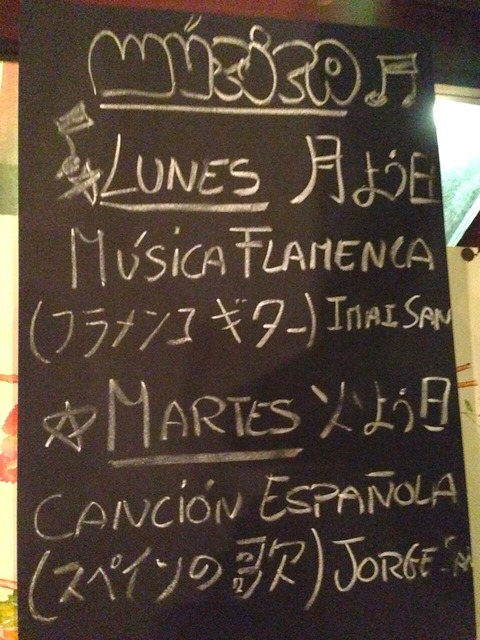 MÚSICA
LUNES 月よう日
MÚSICA FLAMENCA
(フラメンコ ギター) IMAI SAN
MARTES 火よう日
CANCIÓN ESPAÑOLA
(スペインの歌) JORGE